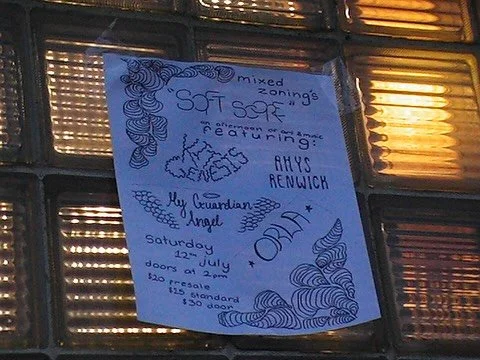 mixed
zoning's
"SOFT SORE"
an afternoon of art & music
featuring:
KIT
GENESIS
RHYS
RENWICK
My Guardian
Angel
ORLA
Saturday
12th July
doors at 2pm
$20 presale
$25 standard
$30 door